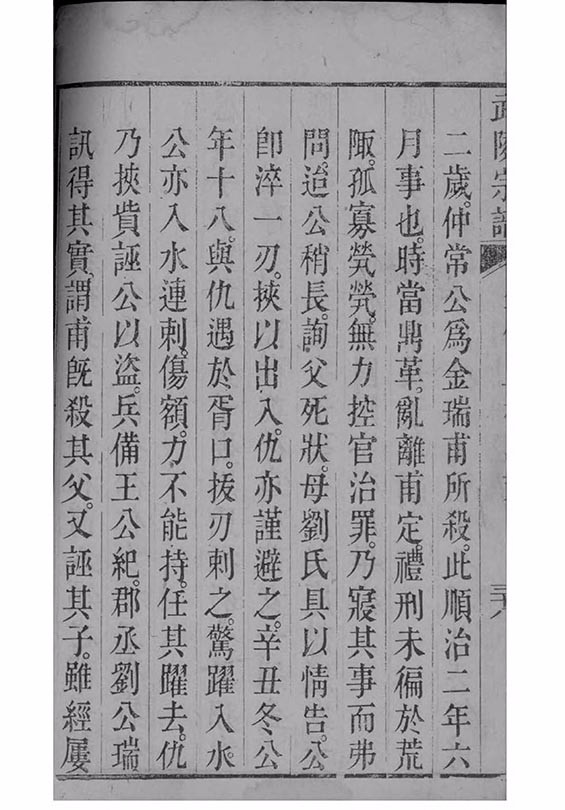 武陵宗譜
二歲。仲常公爲金瑞甫所殺。此順治二年六
月事也。時當鼎革。亂離甫定。禮刑未徧於荒
陬。孤寡煢煢。無力控官治罪。乃寢其事而弗
問。迨公稍長。詢父死狀。母劉氏具以情告。公
卽淬一刃。挾以出入。仇亦謹避之。辛丑冬公
年十八。與仇遇於胥口。拔刃刺之。驚躍入水。
公亦入水連刺。傷額。力不能持。任其躍去。仇
乃挾貲誣公以盜。兵備王公紀。郡丞劉公瑞
訊得其實。謂甫旣殺其父。又誣其子。雖經屢